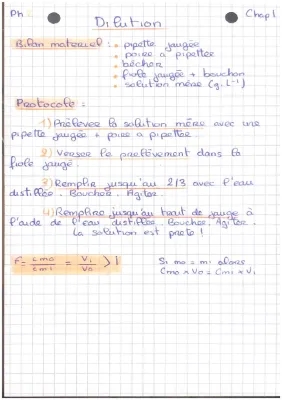 Ph
Chap 1
Dilution
Bilan materiel : • pipette jaugée
• poire a pipetter
• bécher
• fiole jaugée + bouchon
• solution mère (g.L⁻¹)
Protocole :
1) Prélever la solution mère avec une
pipette jaugée + poire a pipetter.
2) Verser le prélèvement dans la
fiole jaugé.
3) Remplir jusqu'au 2/3 avec l'eau
distillée. Boucher. Agiter.
4) Remplir jusqu'au trait de jauge à
l'aide de l'eau distillée. Boucher. Agiter.
La solution est prete !
F = Cmo / Cm1 = V1 / Vo > 1
Si mo = m1 alors
Cmo × Vo = Cm1 × V1